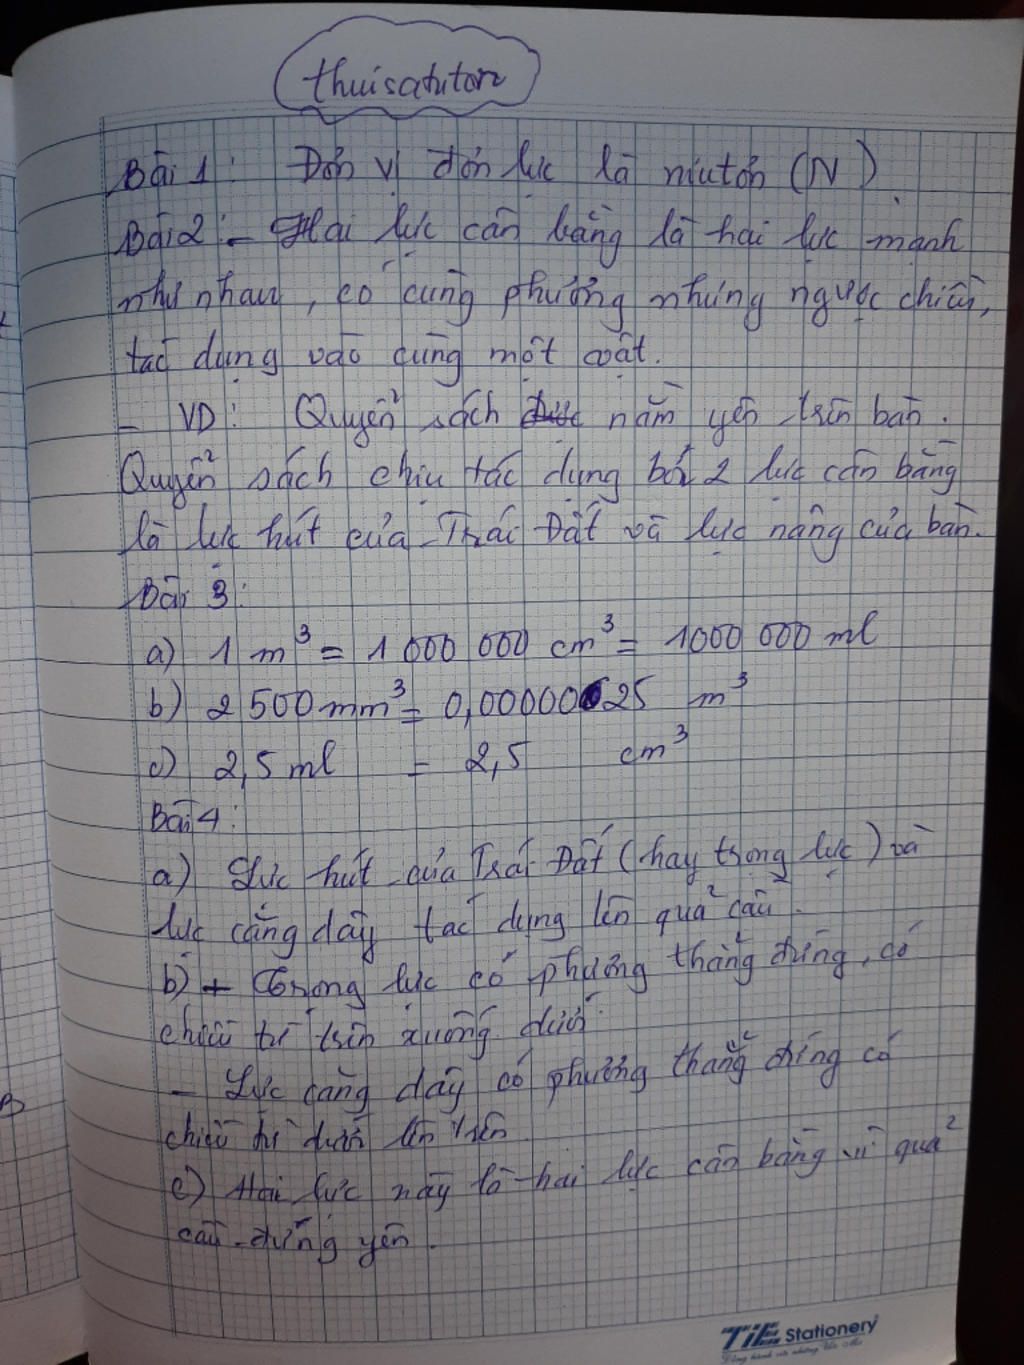 thuisatutor
Bài 1: Đơn vị đơn lực là niutơn (N).
Bài 2: - Hai lực cân bằng là hai lực mạnh
như nhau, có cùng phương nhưng ngược chiều,
tác dụng vào cùng một vật.
- VD: Quyển sách nằm yên trên bàn.
Quyển sách chịu tác dụng bởi 2 lực cân bằng
là lực hút của Trái Đất và lực nâng của bàn.
Bài 3:
a) 1 m³ = 1 000 000 cm³ = 1000 000 ml
b) 2 500 mm³ = 0,0000025 m³
c) 2,5 ml = 2,5 cm³
Bài 4:
a) Lực hút của Trái Đất (hay trọng lực) và
lực căng dây tác dụng lên quả cầu.
b) + Trọng lực có phương thẳng đứng, có
chiều từ trên xuống dưới.
- Lực căng dây có phương thẳng đứng có
chiều từ dưới lên trên
c) Hai lực này là hai lực cân bằng vì quả
cầu đứng yên.
TiE Stationery